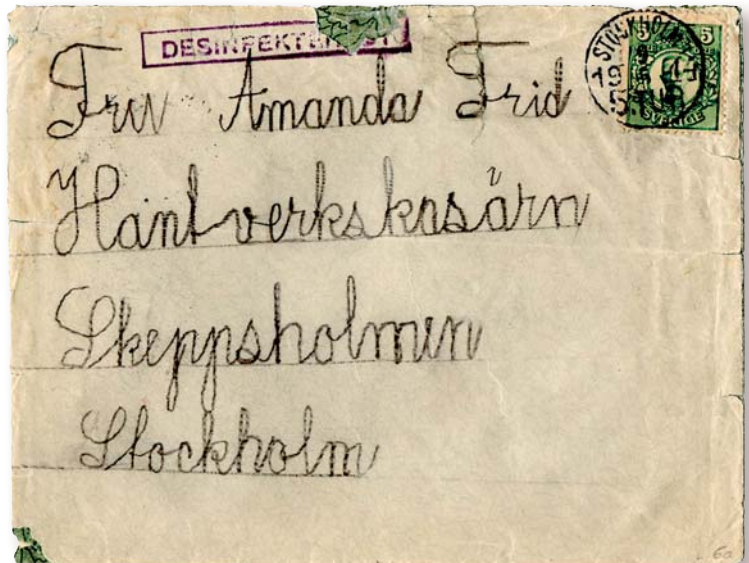 5 5
STOCKHOLM
SVERIGE
Fru Amanda Frid
Hantverkskasärn
Skeppsholmen
Stockholm
60